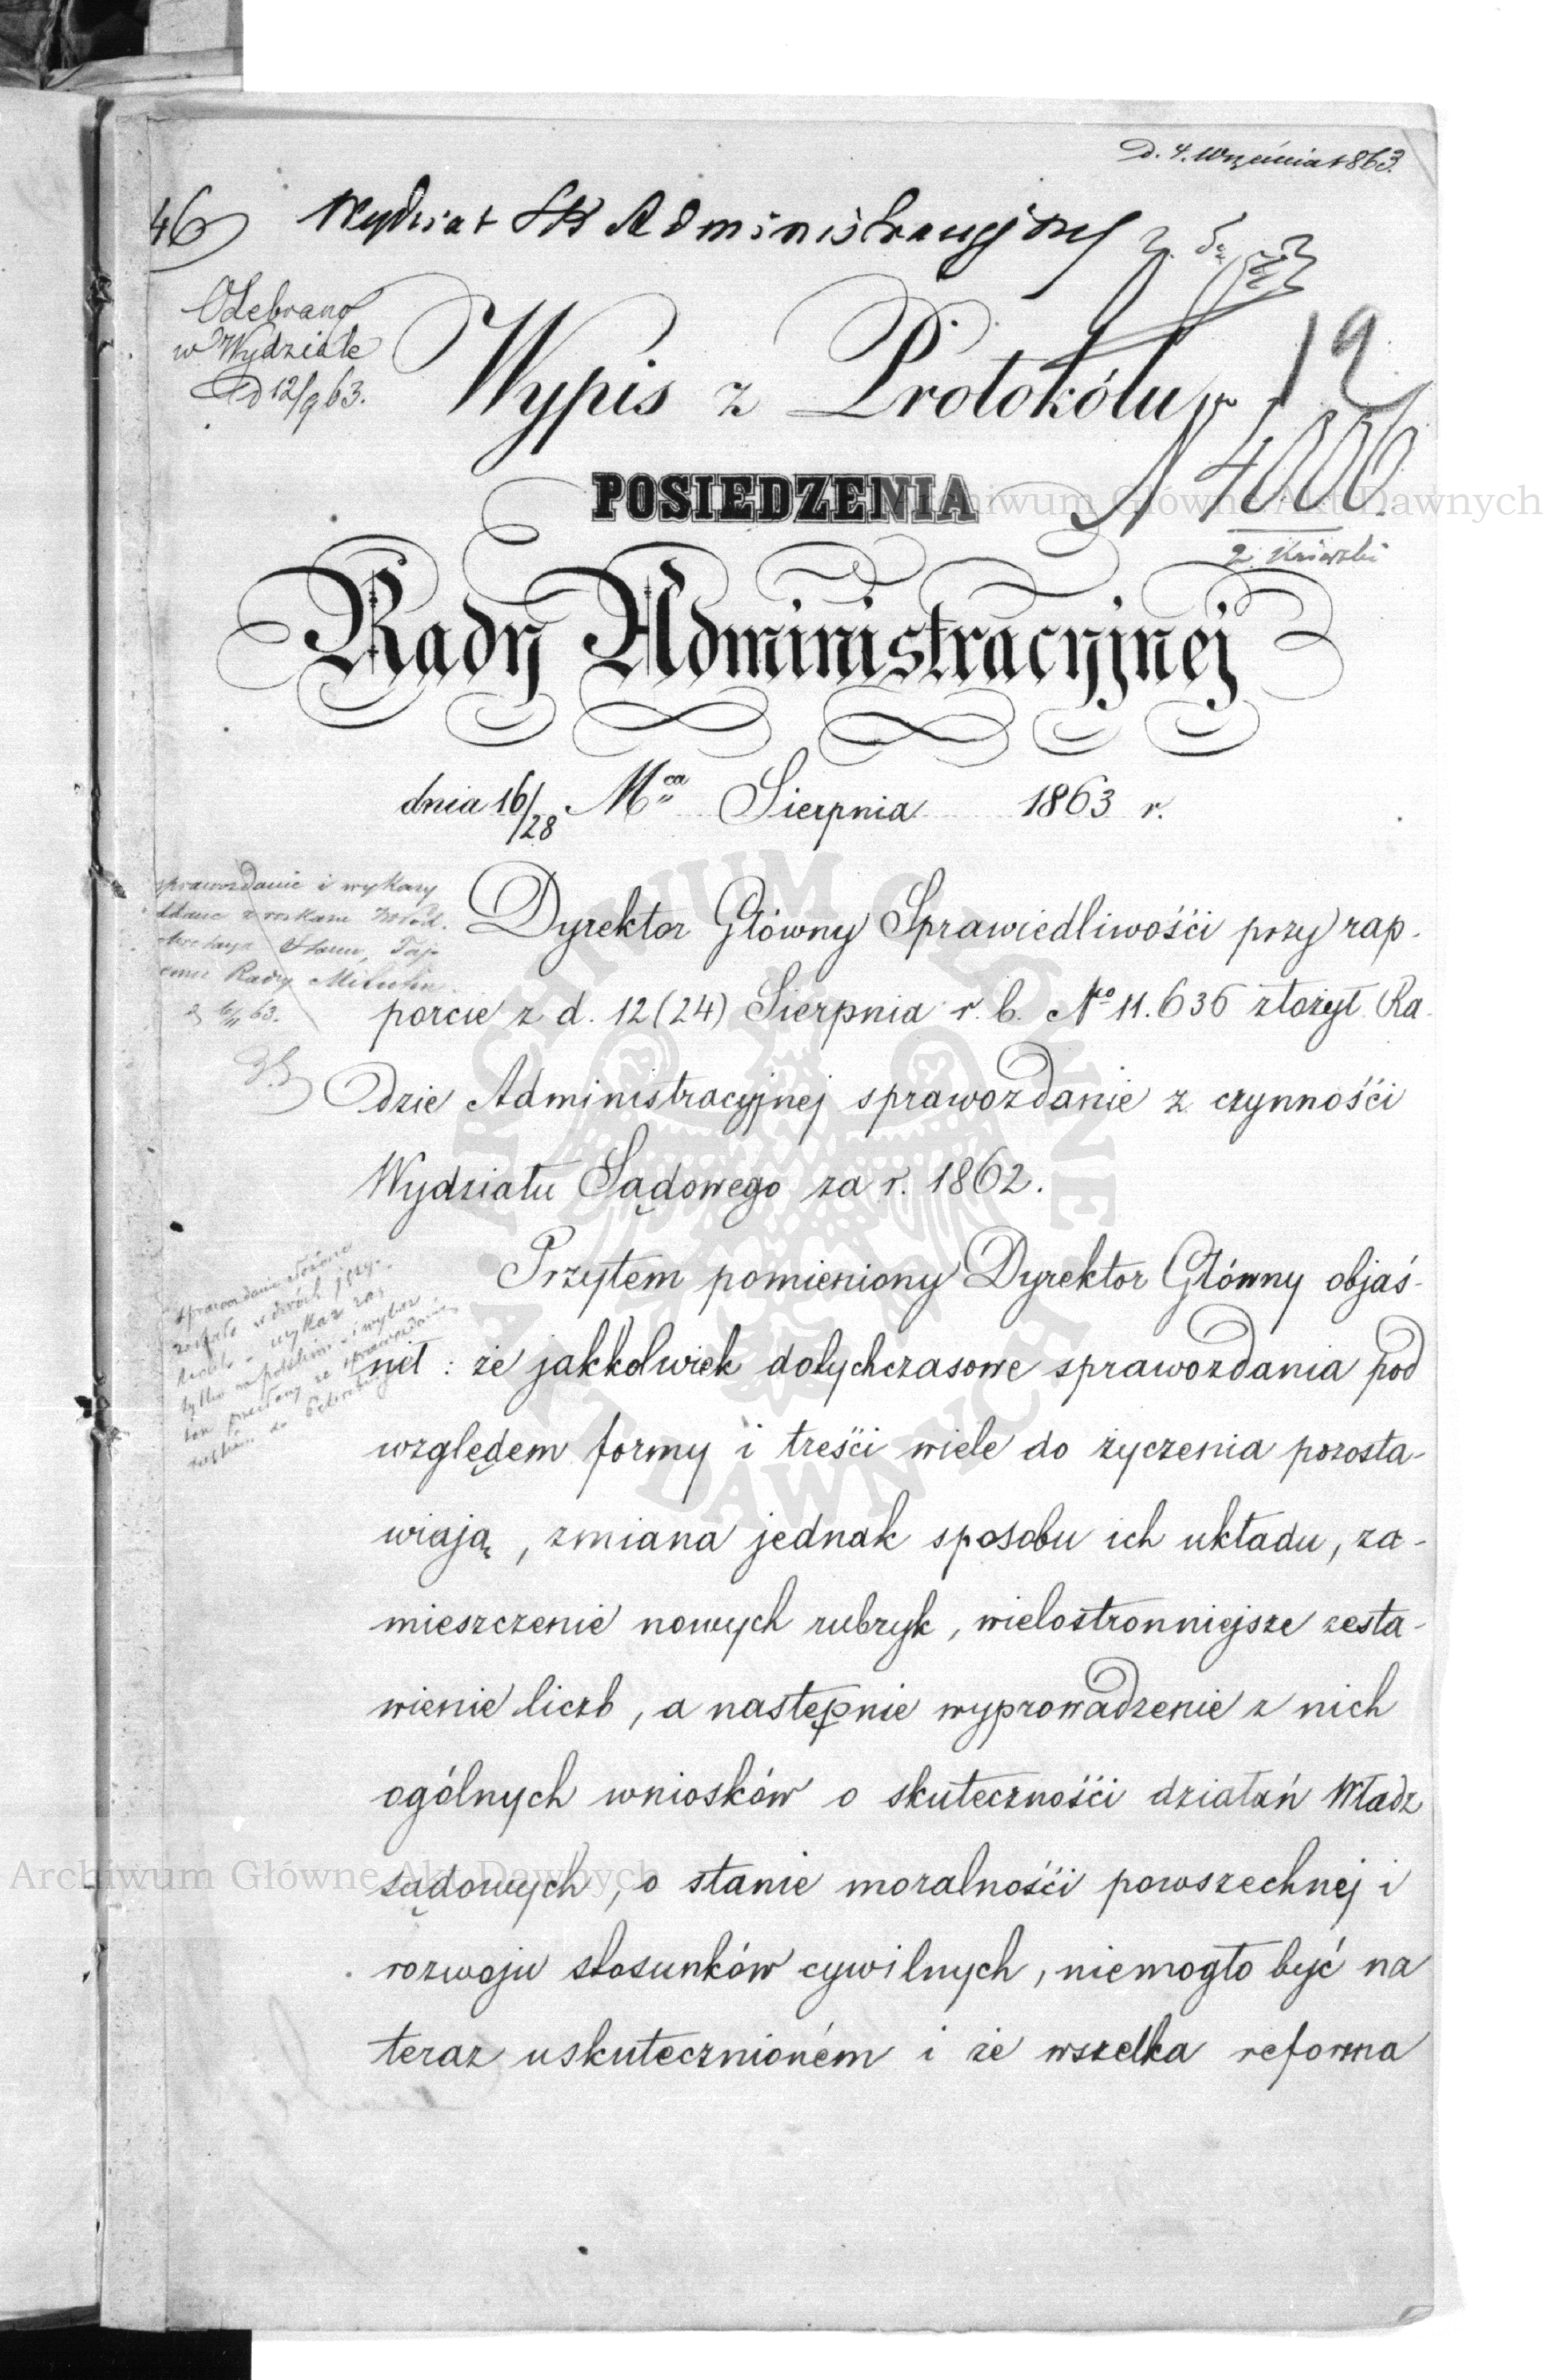 D. 4. Września 1863.
46
Wydział Administracyjny
Odebrano
w Wydziale
D 12/9 63.
Wypis z Protokółu
12
N 4006.
POSIEDZENIA
Rady Administracyjnej
dnia 16/28 Mca Sierpnia 1863 r.
sprawozdanie i wykazy
Stanu,
Rady Milutin
63.
Dyrektor Główny Sprawiedliwości przy rap-
porcie z d. 12 (24) Sierpnia r. b. No 11.636 złożył Ra-
dzie Administracyjnej sprawozdanie z czynności
Wydziału Sądowego za r. 1862.
sprawozdanie złożone
zostało w dwóch języ-
kach - wykaz zaś
tylko w polskim - i wykaz
ten przesłany ze sprawozdaniem
do Petersburga
Przytem pomieniony Dyrektor Główny objaś-
nił : że jakkolwiek dotychczasowe sprawozdania pod
względem formy i treści wiele do życzenia pozosta-
wiają, zmiana jednak sposobu ich układu, za-
mieszczenie nowych rubryk, wielostronniejsze zesta-
wienie liczb, a następnie wyprowadzenie z nich
ogólnych wniosków o skuteczności działań Władz
sądowych, o stanie moralności powszechnej i
rozwoju stosunków cywilnych, niemogło być na
teraz uskutecznioném i że wszelka reforma
Archiwum Główne Akt Dawnych
Archiwum Główne Akt Dawnych
ARCHIWUM GŁÓWNE AKT DAWNYCH